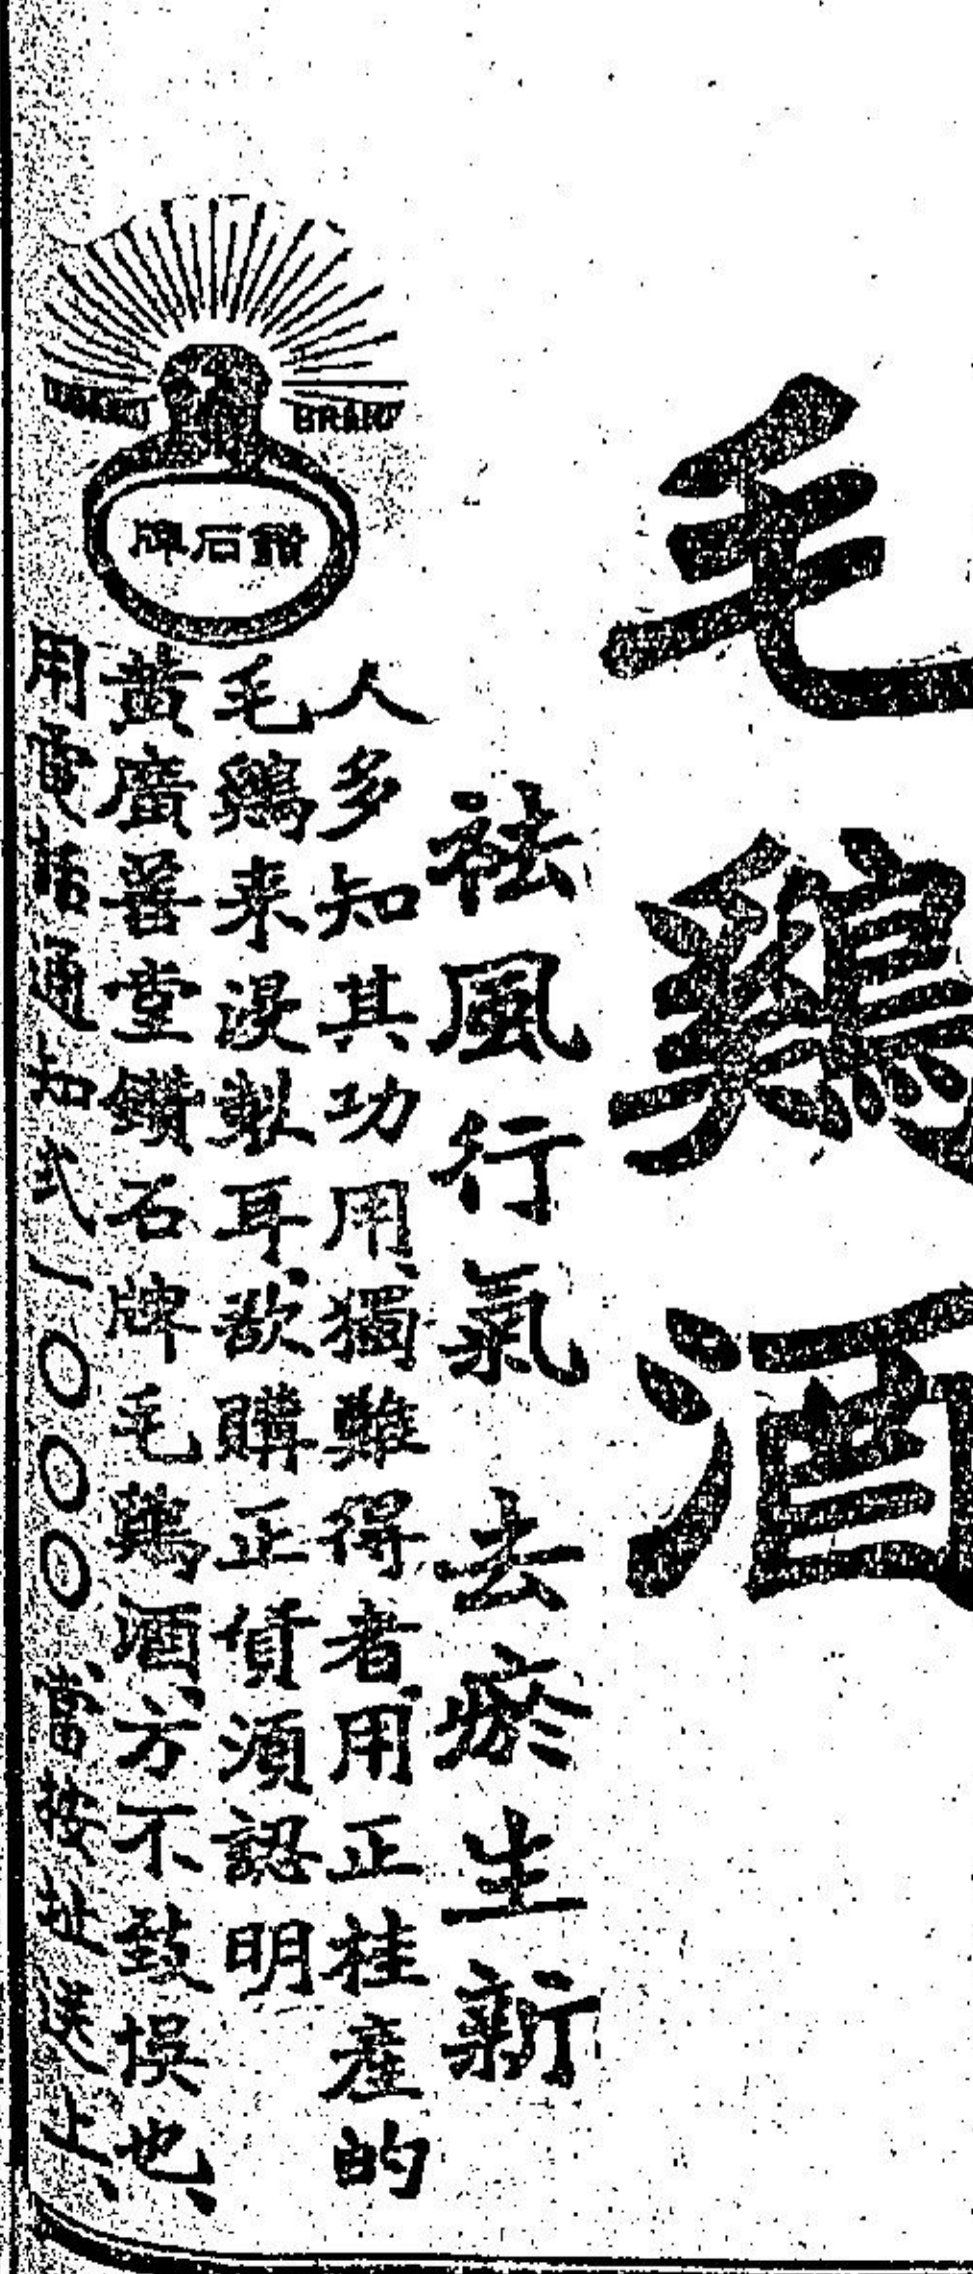 毛鷄酒
祛風行氣 去瘀生新
人多知其功用、獨難得者、用正桂產的
毛鷄来浸製耳、欲購正貨須認明
黃廣善堂鑽石牌毛鷄酒、方不致悞也、
用電話通知式一〇〇〇、當按址送上、
BRAND
鑽石牌